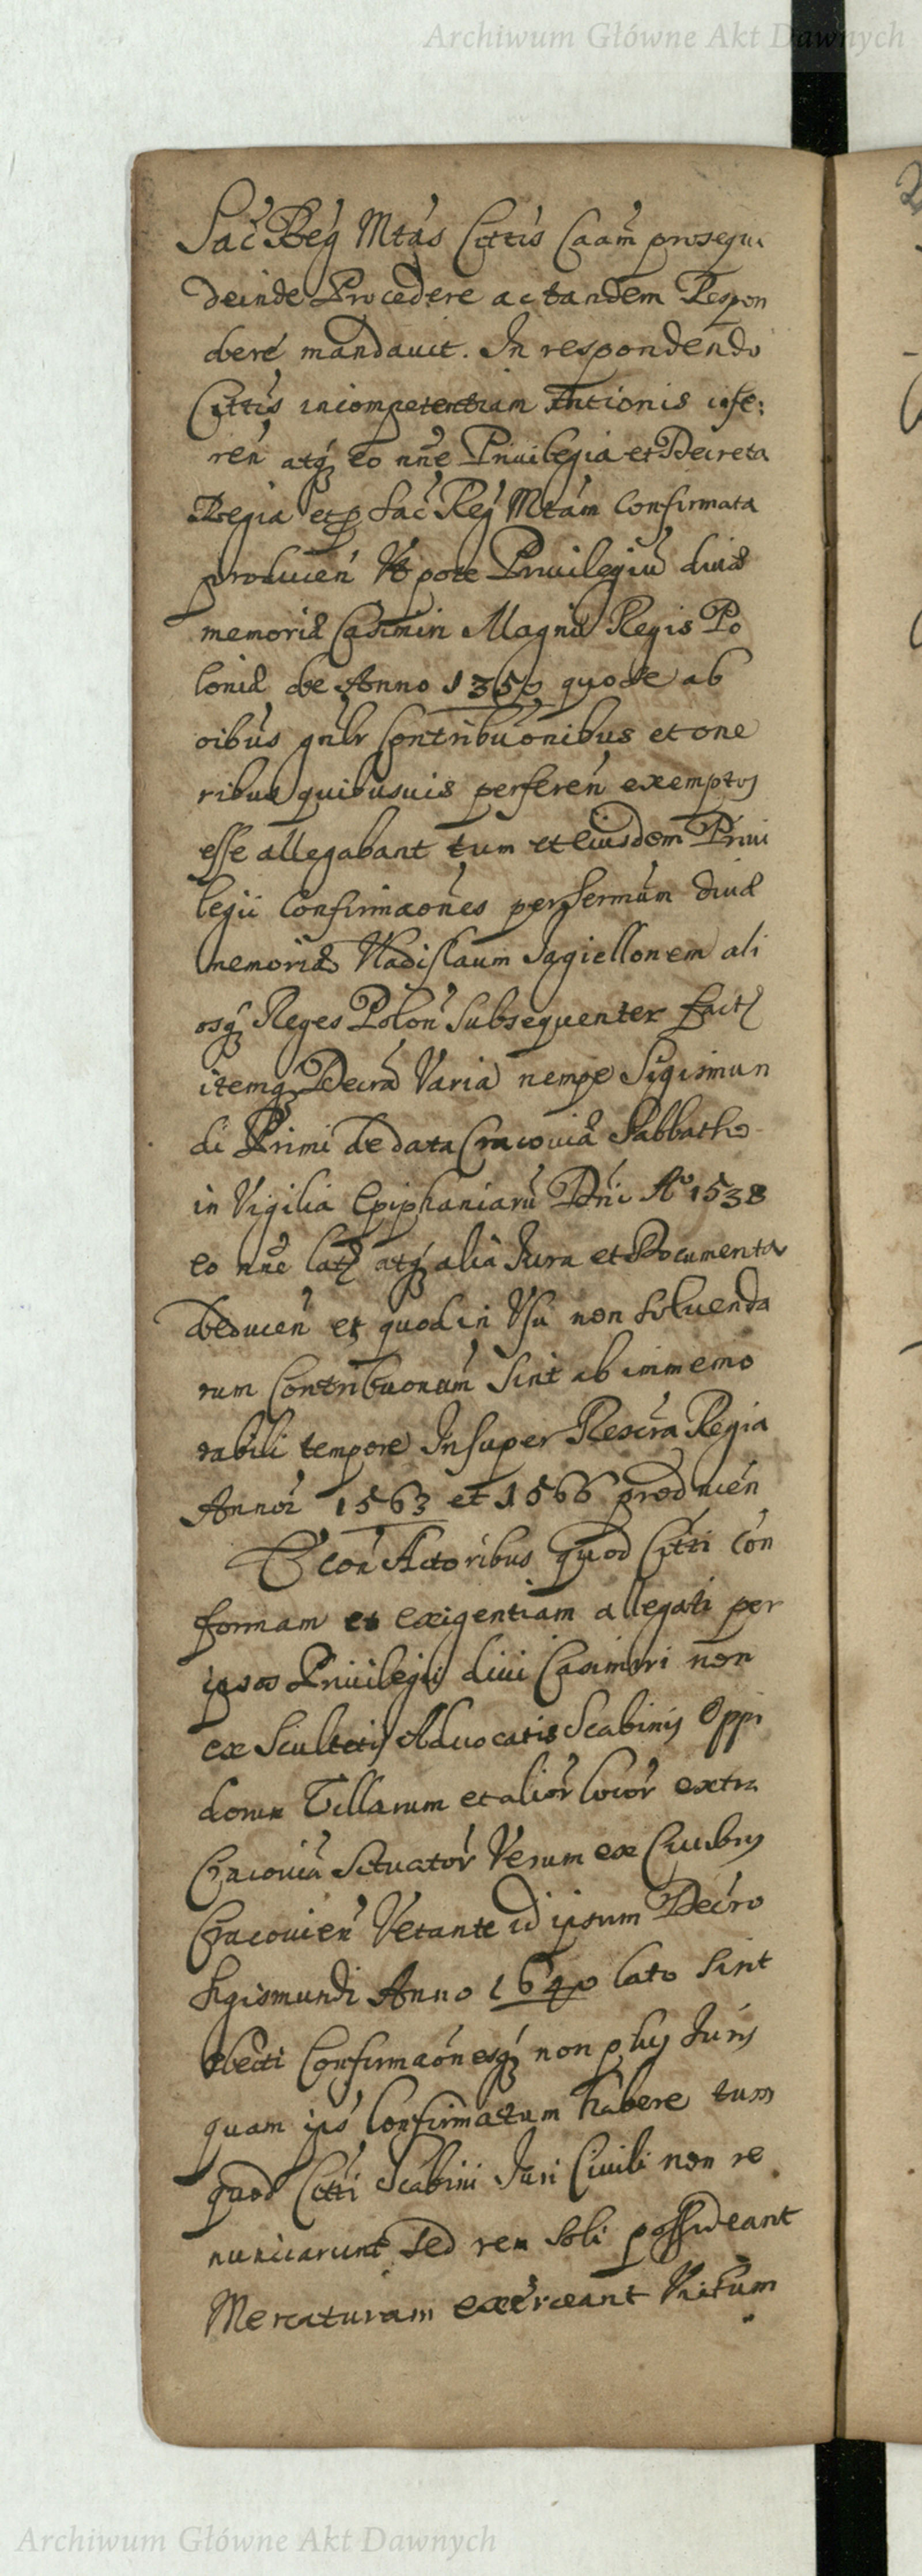 Archiwum Główne Akt Dawnych
Sac Reg Mtas Cittis Caam prosequi
deinde Procedere ac tandem Respon
dere mandavit. In respondendo
Cittis incompetentiam Actionis infe:
ren atq eo nne Privilegia et Decreta
Regia et p Sac Reg Mtam confirmata
producen Ut pote Privilegiu divæ
memoriæ Casimiri Magni Regis Po
loniæ de Anno 1350 quo se ab
oibus gnlr Contribuonibus et one
ribus quibusvis perferen exemptos
esse allegabant tum et eiusdem Privi
legii Confirmaones per Sermum divæ
memoriæ Vladislaum Jagiellonem ali
osq Reges Polon Subsequenter fact
itemq Decra Varia nempe Sigismun
di Primi de data Cracoviæ Sabbatho
in Vigilia Epiphaniaru Dni Ao 1538
eo nne lat atq alia Jura et Documenta
deducen et quod in Usu non Solvenda
rum Contribuonum Sint ab immemo
rabili tempore Insuper Rescra Regia
Annor 1563 et 1566 producen
E con Actoribus quod Citti con
formam et exigentiam allegati per
ipsos Privilegii divi Casimiri non
ex Scultetis Advocatis Scabinis Oppi
dorum Villarum et alior locor extra
Cracoviã Situator Verum ex Civibus
Cracovien Vetante id ipsum Decro
Sigismundi Anno 1540 lato Sint
electi Confirmaonesq non plus Juris
quam ips Confirmatum habere tum
quod Citti Scabini Juri Civili non re
nunciarunt Sed rem Soli possideant
Mercaturam exerceant Vnitum
Archiwum Główne Akt Dawnych